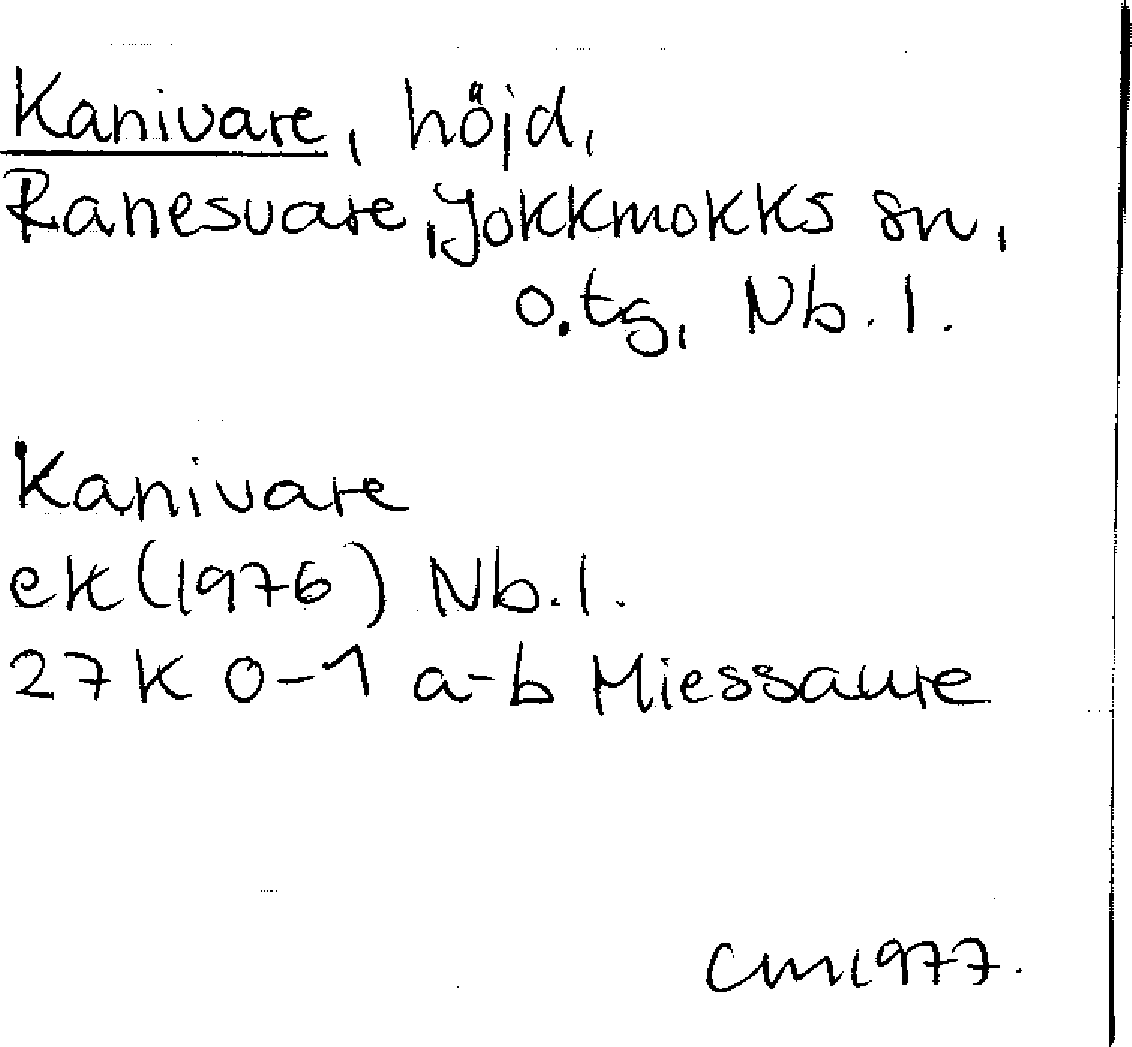 Kanivare, höjd,
Ranesvare, Jokkmokks sn,
o.tg, Nb. l.
Kanivare
ek (1976) Nb. l.
27 K 0-1 a-b Miessaure
CM 1977.